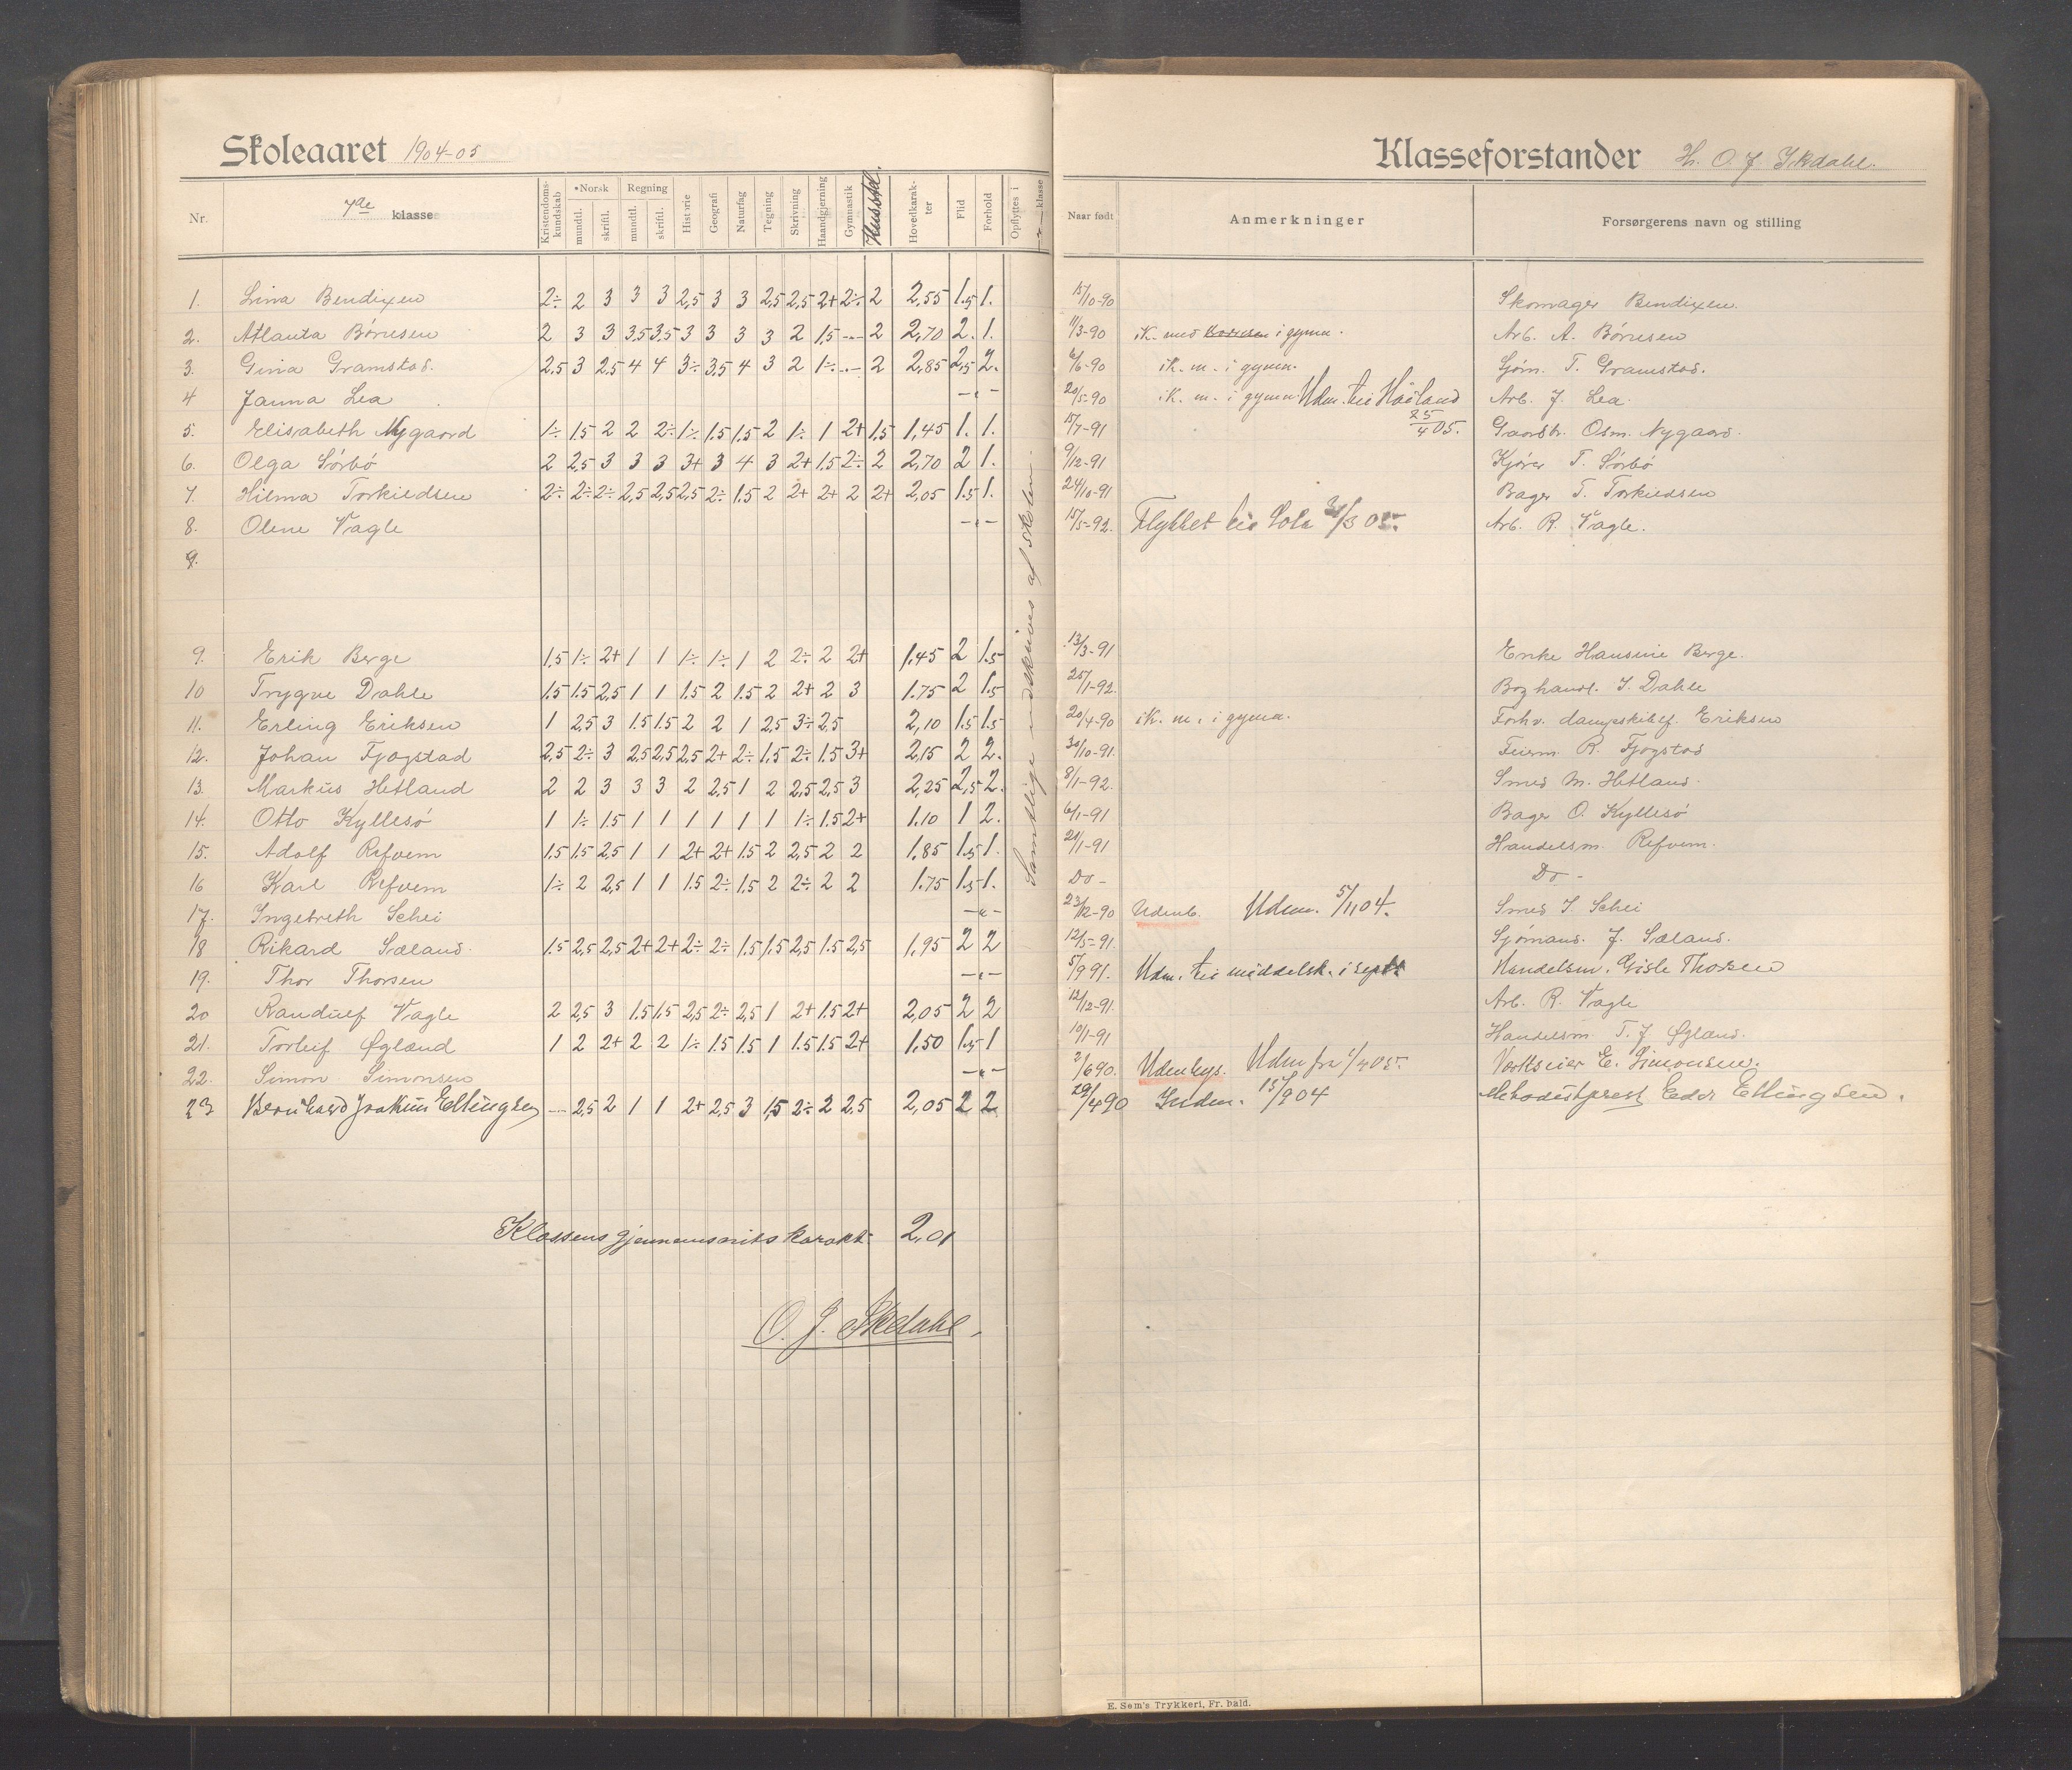 Skoleaaret 1904-05
Nr. 7de klasse Kristendoms-kundskab Norsk mundtl. skriftl. Regning mundtl. skriftl. Historie Geografi Naturfag Tegning Skrivning Haandgjerning Gymnastik Husstel. Hovedkarak-ter Flid Forhold Opflyttes i klasse
1. Lina Bendixen 2÷ 2 3 3 3 2,5 3 3 2,5 2,5 2+ 2÷ 2 2,55 1.5 1.
2. Atlanta Börresen 2 3 3 3,5 3,5 3 3 3 3 2 1,5 -- 2 2,70 2. 1.
3. Gina Gramstad. 2,5 3 2,5 4 4 3÷ 3,5 4 3 2 1÷ -- 2 2,85 2,5 2.
4 Janna Lea -"-
5. Elisabeth Nygaard 1÷ 1.5 2 2 2÷ 1÷ 1.5 1.5 2 1÷ 1 2+ 1,5 1,45 1. 1.
6. Olga Sörbö 2 2,5 3 3 3 3+ 3 4 3 2+ 1.5 2÷ 2 2,70 2 1.
7. Hilma Torkildsen 2÷ 2÷ 2÷ 2,5 2,5 2,5 2÷ 1.5 2 2+ 2+ 2 2+ 2,05 1.5 1.
8. Olene Vagle -"-
9.
9. Erik Berge 1,5 1÷ 2+ 1 1 1÷ 1÷ 1 2 2÷ 2 2+ 1.45 2 1.5
10 Trygve Dahle 1.5 1.5 2,5 1 1 1.5 2 1.5 2 2+ 2 3 1.75 2 1.5
11. Erling Eriksen 1 2,5 3 1.5 1.5 2 2 1 2,5 3÷ 2,5 2,10 1.5 1.5
12. Johan Fjogstad 2,5 2÷ 3 2,5 2,5 2,5 2+ 2÷ 1,5 2÷ 1.5 3+ 2,15 2 2.
13. Markus Hetland 2 2 3 3 3 2 2,5 1 2 2,5 2,5 3 2,25 2,5 2.
14. Otto Kyllesö 1 1÷ 1.5 1 1 1 1 1 1 1÷ 1.5 2+ 1.10 1 2.
15. Adolf Refvem 1.5 1.5 2,5 1 1 2+ 2+ 1.5 2 2,5 2 2 1,85 1.5 1.
16 Karl Refvem 1÷ 2 2,5 1 1 1.5 2÷ 1,5 2 2÷ 2 2 1.75 1.5 1.
17. Ingebreth Schei -"-
18 Rikard Sæland. 1.5 2,5 2,5 2+ 2+ 2÷ 2÷ 1.5 1.5 2,5 1.5 2,5 1,95 2 2
19. Thor Thorsen -"-
20 Randulf Vagle 2 2,5 3 1.5 1,5 2,5 2÷ 2,5 1 2+ 1.5 2+ 2,05 2 2
21. Torleif Øgland 1 2 2+ 2 2 1÷ 1.5 1.5 1 1.5 1.5 2+ 1,50 1.5 1
22. Simon Simonsen -"-
23 Bernhard Joakim Ellingsen -- 2,5 2 1 1 2+ 2,5 3 1,5 2÷ 2 2,5 2,05 2 2
Samtlige udskrives af skolen.
Klassens gjennemsnits karakt. 2,01
O. J. Skdahl.
Klasseforstander H. O. J. Skdahl.
Naar født Anmerkninger Forsørgerens navn og stilling
15/10-90 Skomager Bendixen.
11/3-90 ik. med i gymn. Arb. A. Börresen
6/6-90 ik. m. i gymn. Sjöm. T. Gramstad.
20/5-90 ik. m. i gymn. Udm. til Høiland 25/4 05. Arb. J. Lea.
15/7-91 Gaardbr. Osm. Nygaard.
9/12-91 Kjörer T. Sörbö
24/10-91 Bager T. Torkildsen
15/5-92. Flyttet til Sola 31/3 05. Arb. R. Vagle.
13/3-91 Enke Hansine Berge.
25/1-92. Boghandl. I. Dahle
20/4-90 ik. m. i gymn. Forhv. dampskibsf. Eriksen
30/10-91. Feierm. R. Fjogstad
8/1-92. Smed M. Hetland.
6/1-91 Bager O. Kyllesö
21/1-91 Handelsm. Refvem.
Do - Do -
23/12-90 Udenb. Udm. 5/11 04. Smed I. Schei
12/5-91. Sjömand. J. Sæland.
5/9 91. Udm. til middelsk. i sept. Handelsm. Gisle Thorsen
12/12-91. Arb. R. Vagle
10/1-91 Handelsm. T. J. Øgland.
2/6 90. Udenbys. Udm fra 1/4 05. Værkseier E. Simonsen.
29/4 90 Indm. 15/9 04 Methodistprest Edv Ellingsen.
E. Sem's Trykkeri, Fr. hald.